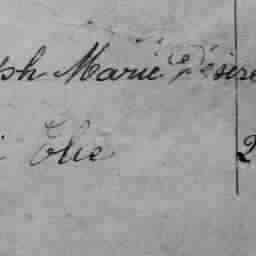 ph Marie Désiré
Elie 2